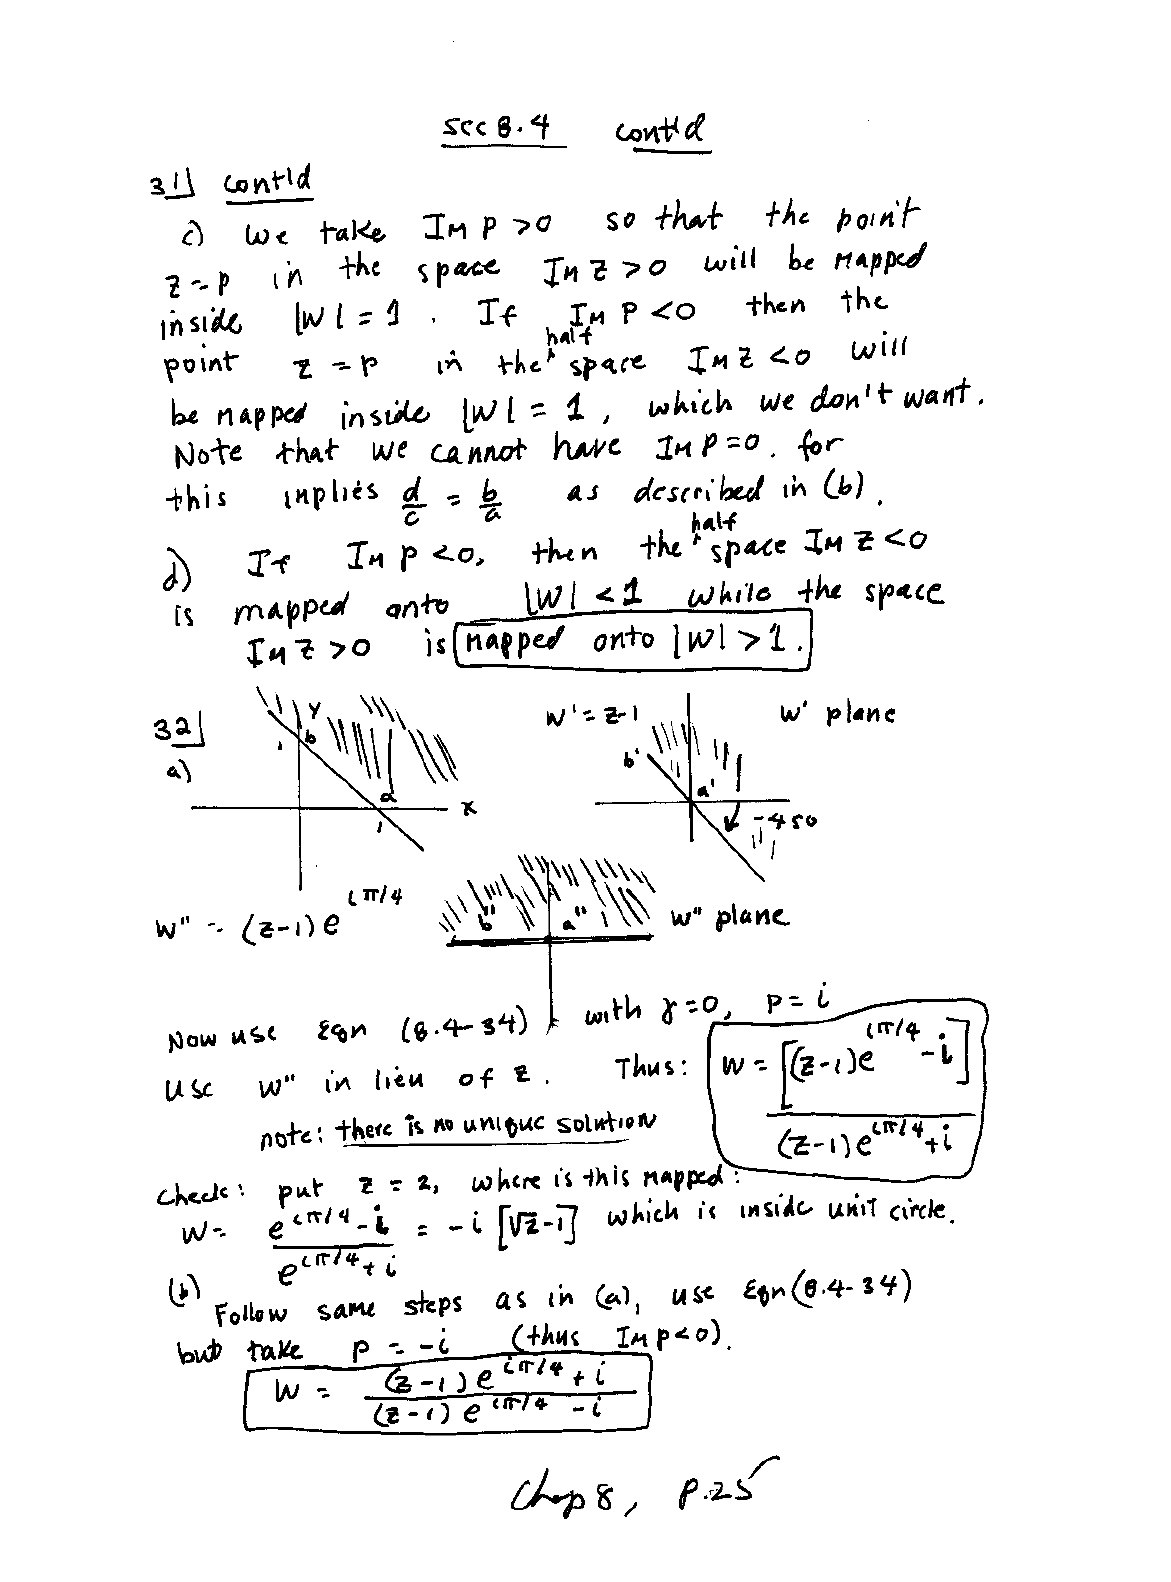 sec 8.4 cont'd
31] cont'd
c) We take Im p > 0 so that the point
z = p in the space Im z > 0 will be mapped
inside |w| = 1. If Im p < 0 then the
point z = p in the half space Im z < 0 will
be mapped inside |w| = 1, which we don't want.
Note that we cannot have Im p = 0. for
this implies d/c = b/a as described in (b).
d) If Im p < 0, then the half space Im z < 0
is mapped onto |w| < 1 while the space
Im z > 0 is mapped onto |w| > 1.
32]
a)
y
b
1
a
1
x
w' = z-1
w' plane
b'
a'
-45°
w" = (z-1) e^{iπ/4}
b"
a"
w" plane
Now use Eqn (8.4-34) with γ=0, p = i
Use w" in lieu of z. Thus: w = [(z-1)e^{iπ/4} - i] / (z-1)e^{iπ/4} + i
note: there is no unique solution
Check: put z = 2, where is this mapped:
w = e^{iπ/4} - i / e^{iπ/4} + i = -i [√2 - 1] which is inside unit circle.
(b) Follow same steps as in (a), use Eqn (8.4-34)
but take p = -i (thus Im p < 0).
w = (z-1) e^{iπ/4} + i / (z-1) e^{iπ/4} - i
Chap 8, p. 25